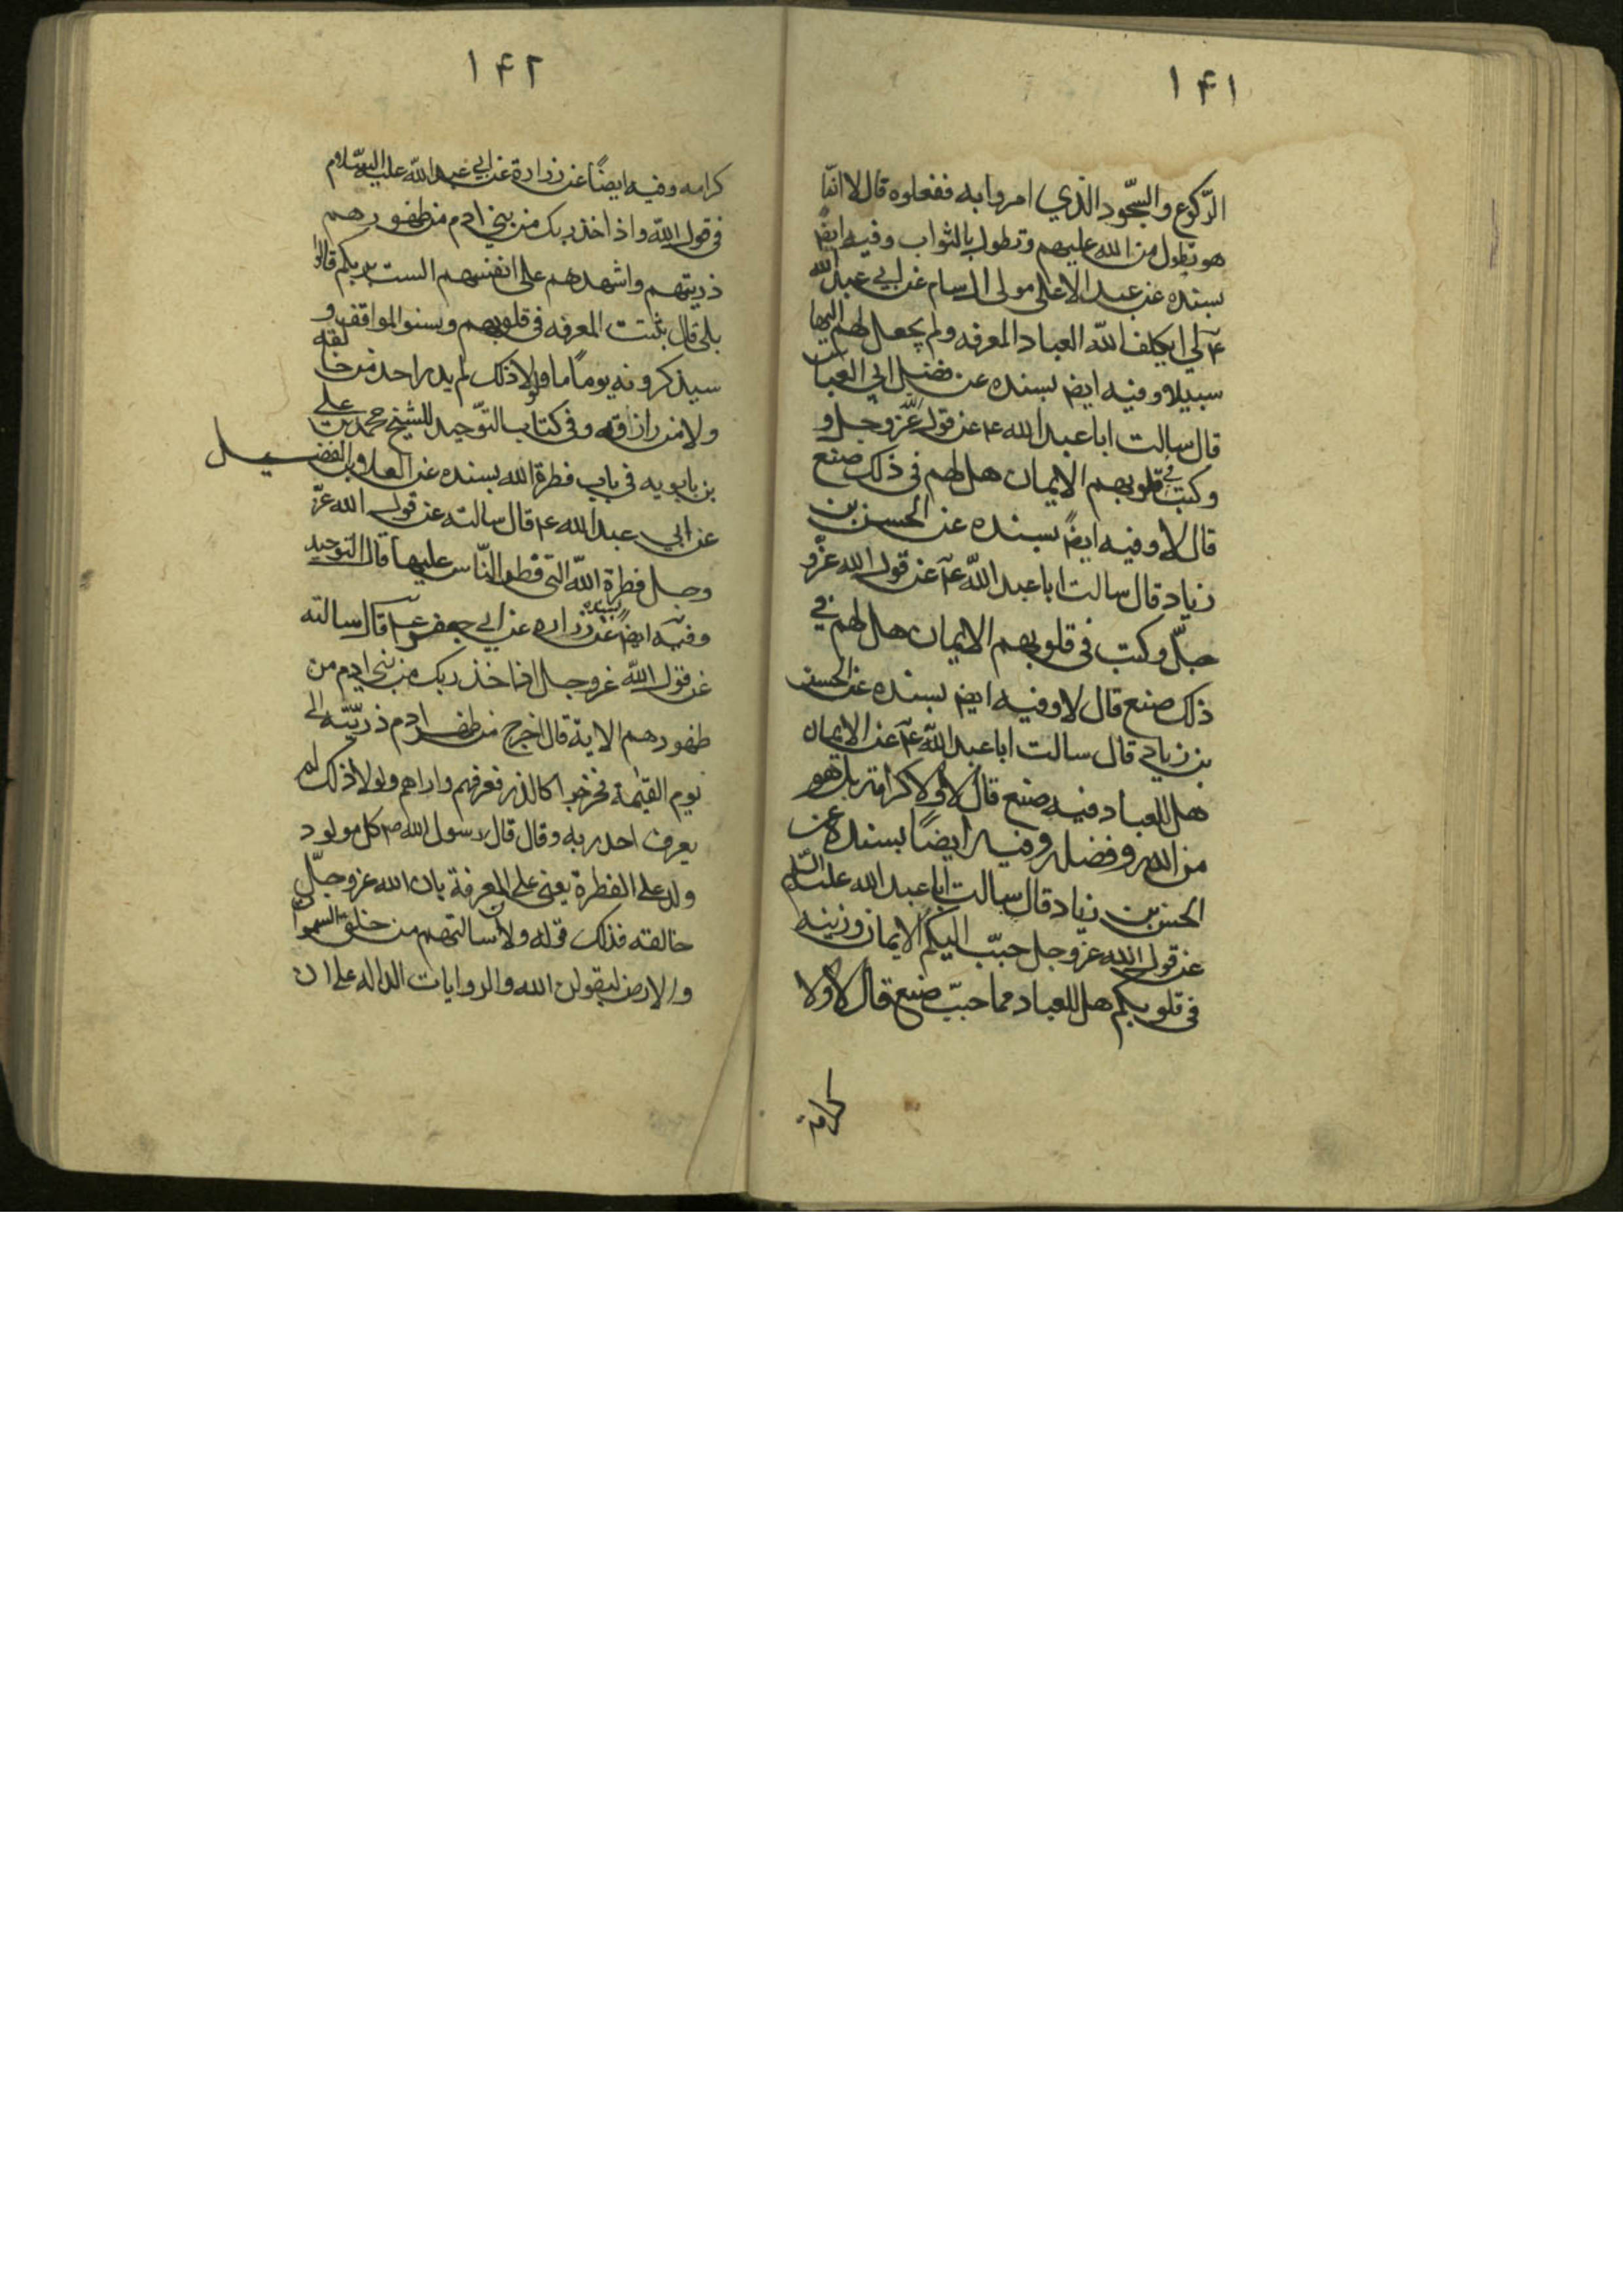 ۱۴۱
الرّكوع والسّجود الذي امروا به ففعلوه قال لا انما
هو تطول من الله عليهم وتطول بالثواب وفيه ايضً
بسنده عن عبد الاعلى مولى ال سام عن ابي عبد الله
ع لم يكلف الله العباد المعرفه ولم يجعل لهم اليها
سبيلا وفيه ايض بسنده عن فضيل ابي العباس
قال سالت ابا عبد الله ع عن قوله عزّ وجل و
وكتب في قلوبهم الايمان هل لهم في ذلك صنع
قال لا وفيه ايضً بسنده عن الحسن بن
زياد قال سالت ابا عبد اللّه ع عن قول الله عزّ و
جلّ وكتب في قلوبهم الايمان هل لهم في
ذلك صنع قال لا وفيه ايض بسنده عن الحسن
بن زياد قال سالت ابا عبد اللّه ع عن الايمان
هل للعباد فيه صنع قال لا ولا كرامة بل هو
من الله وفضله وفيه ايضًا بسنده عن
الحسن بن زياد قال سالت ابا عبد الله عليه السّلام
عن قول الله عز وجل حبّب اليكم الايمان وزينه
في قلوبكم هل للعباد مما حبّب صنع قال لا ولا
كرامة
۱۴۲
كرامه وفيه ايضًا عن زرارة عن ابي عبد اللّه عليه السّلام
في قول اللّه واذ اخذ ربك من بني ادم من ظهورهم
ذريتهم واشهدهم على انفسهم الست بربكم قالوا
بلى قال ثبتت المعرفه في قلوبهم ونسوا المواقف و
سيذكرونه يومًا ما ولولا ذلك لم يدر احد من خالقه
ولا من رازقه وفي كتاب التّوحيد للشيخ محمد بن علي
بن بابويه في باب فطرة الله بسنده عن العلا بن الفضيل
عن ابي عبد الله ع قال سالته عن قول الله عزّ
وجل فطرة اللّه التي فطر النّاس عليها قال التوحيد
وفيه ايضً بسنده عن زراره عن ابي جعفر ع قال سالته
عن قول اللّه عز وجل اذ اخذ ربك من بني ادم من
ظهورهم الاية قال اخرج من ظهر ادم ذريّته الى
يوم القيمة فخرجوا كالذر فعرفهم واراهم ولولا ذلك لم
يعرف احد ربه وقال قال رسول الله ص كل مولود
ولد على الفطرة يعني على المعرفة بان الله عز وجلّ
خالقه فذلك قوله ولان سالتهم من خلق السموات
والارض ليقولن الله والروايات الداله على ان